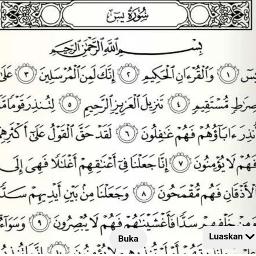 سُورَةُ يسٓ
بِسْمِ ٱللَّهِ ٱلرَّحْمَٰنِ ٱلرَّحِيمِ
يسٓ ١ وَٱلْقُرْءَانِ ٱلْحَكِيمِ ٢ إِنَّكَ لَمِنَ ٱلْمُرْسَلِينَ ٣ عَلَىٰ
صِرَٰطٍ مُّسْتَقِيمٍ ٤ تَنزِيلَ ٱلْعَزِيزِ ٱلرَّحِيمِ ٥ لِتُنذِرَ قَوْمًا مَّآ
أُنذِرَ ءَابَآؤُهُمْ فَهُمْ غَٰفِلُونَ ٦ لَقَدْ حَقَّ ٱلْقَوْلُ عَلَىٰٓ أَكْثَرِهِمْ
فَهُمْ لَا يُؤْمِنُونَ ٧ إِنَّا جَعَلْنَا فِىٓ أَعْنَٰقِهِمْ أَغْلَٰلًا فَهِىَ إِلَى
ٱلْأَذْقَانِ فَهُم مُّقْمَحُونَ ٨ وَجَعَلْنَا مِنۢ بَيْنِ أَيْدِيهِمْ سَدًّا
وَمِنْ خَلْفِهِمْ سَدًّا فَأَغْشَيْنَٰهُمْ فَهُمْ لَا يُبْصِرُونَ ٩ وَسَوَآءٌ
Buka
Luaskan